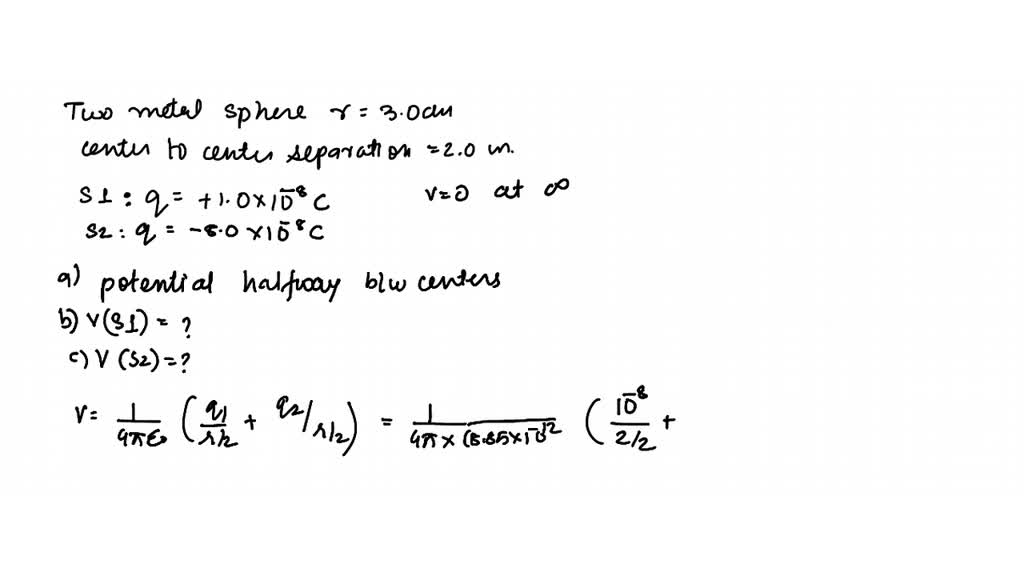 Two metal sphere r = 3.0cm
center to center separation = 2.0 m.
S1 : q = +1.0×10⁻⁸ C V=0 at ∞
S2 : q = -8.0 ×10⁻⁸ C
a) potential halfway b/w centers
b) V(S1) = ?
c) V (S2) = ?
V = 1/4πε₀ (q1/r/2 + q2/r/2) = 1/4π × (8.85×10⁻¹² (10⁻⁸/2/2 +